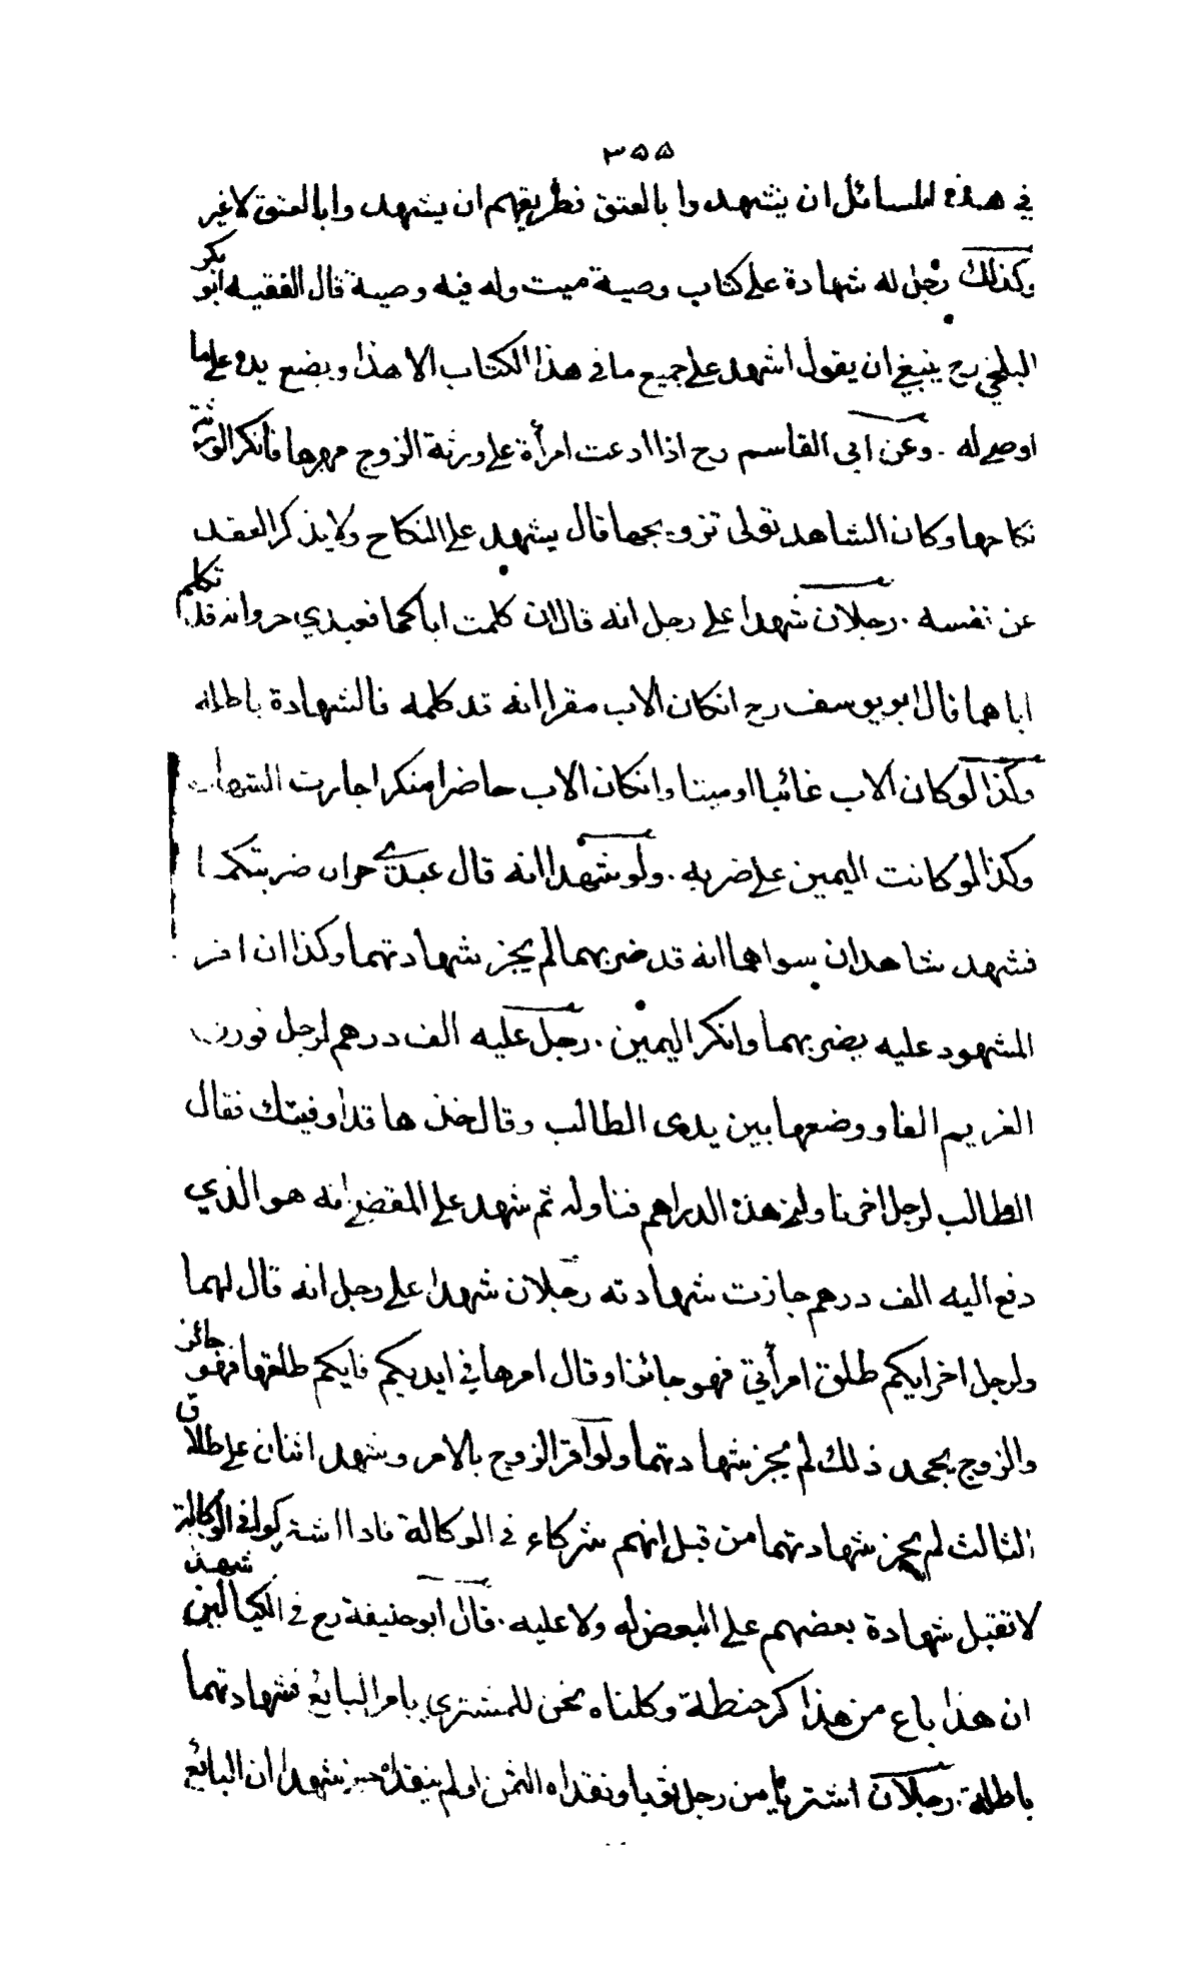 ٣٥٥
في هذه المسائل ان يشهدوا بالعتق فطريقهم ان يشهدوا بالعتق لا غير
وكذلك رجل له شهادة على كتاب وصية ميت وله فيه وصية قال الفقيه ابو بكر
البلخي رح ينبغي ان يقول اشهد على جميع ما في هذا الكتاب الا هذا ويضع يده على ما
اوصى له . وعن ابى القاسم رح اذا ادعت امرأة على ورثة الزوج مهرها فانكر الورثة
نكاحها وكان الشاهد تولى تزويجها قال يشهد على النكاح ولا يذكر العقد
عن نفسه . رجلان شهدا على رجل انه قال ان كلمت اباكما فعبدي حر وانه قد تكلم
اباهما قال ابو يوسف رح انكان الاب مقرا انه قد كلمه فالشهادة باطلة
وكذا لو كان الاب غائبا او ميتا وانكان الاب حاضرا منكرا جازت الشهادة
وكذا لو كانت اليمين على ضربه . ولو شهدا انه قال عبدي حران ضربتكما
فشهد شاهدان سواهما انه قد ضربهما لم يجز شهادتهما وكذا ان اقر
المشهود عليه بضربهما وانكر اليمين . رجل عليه الف درهم لرجل فوزن
الغريم الفا ووضعها بين يدى الطالب وقال خذها قد اوفيتك فقال
الطالب لرجل اخر ناولني هذه الدراهم فناوله ثم شهد على المقضي انه هو الذي
دفع اليه الف درهم جازت شهادته رجلان شهدا على رجل انه قال لهما
ولرجل اخر ايكم طلق امرأتي فهو جائز او قال امرها في ايديكم فايكم طلقها فهو جائز
والزوج يجحد ذلك لم يجز شهادتهما ولو اقر الزوج بالامر وشهد اثنان على طلاق
الثالث لم يجز شهادتهما من قبل انهم شركاء في الوكالة فاذا اشتركوا في الوكالة
لا تقبل شهادة بعضهم على البعض له ولا عليه . قال ابو حنيفة رح في الكيالين شهدا
ان هذا باع من هذا كر حنطة وكلناه نحن للمشتري بامر البايع فشهادتهما
باطلة . رجلان اشتريا من رجل ثوبا ونقداه الثمن او لم ينقداه حتى شهدا ان البائع